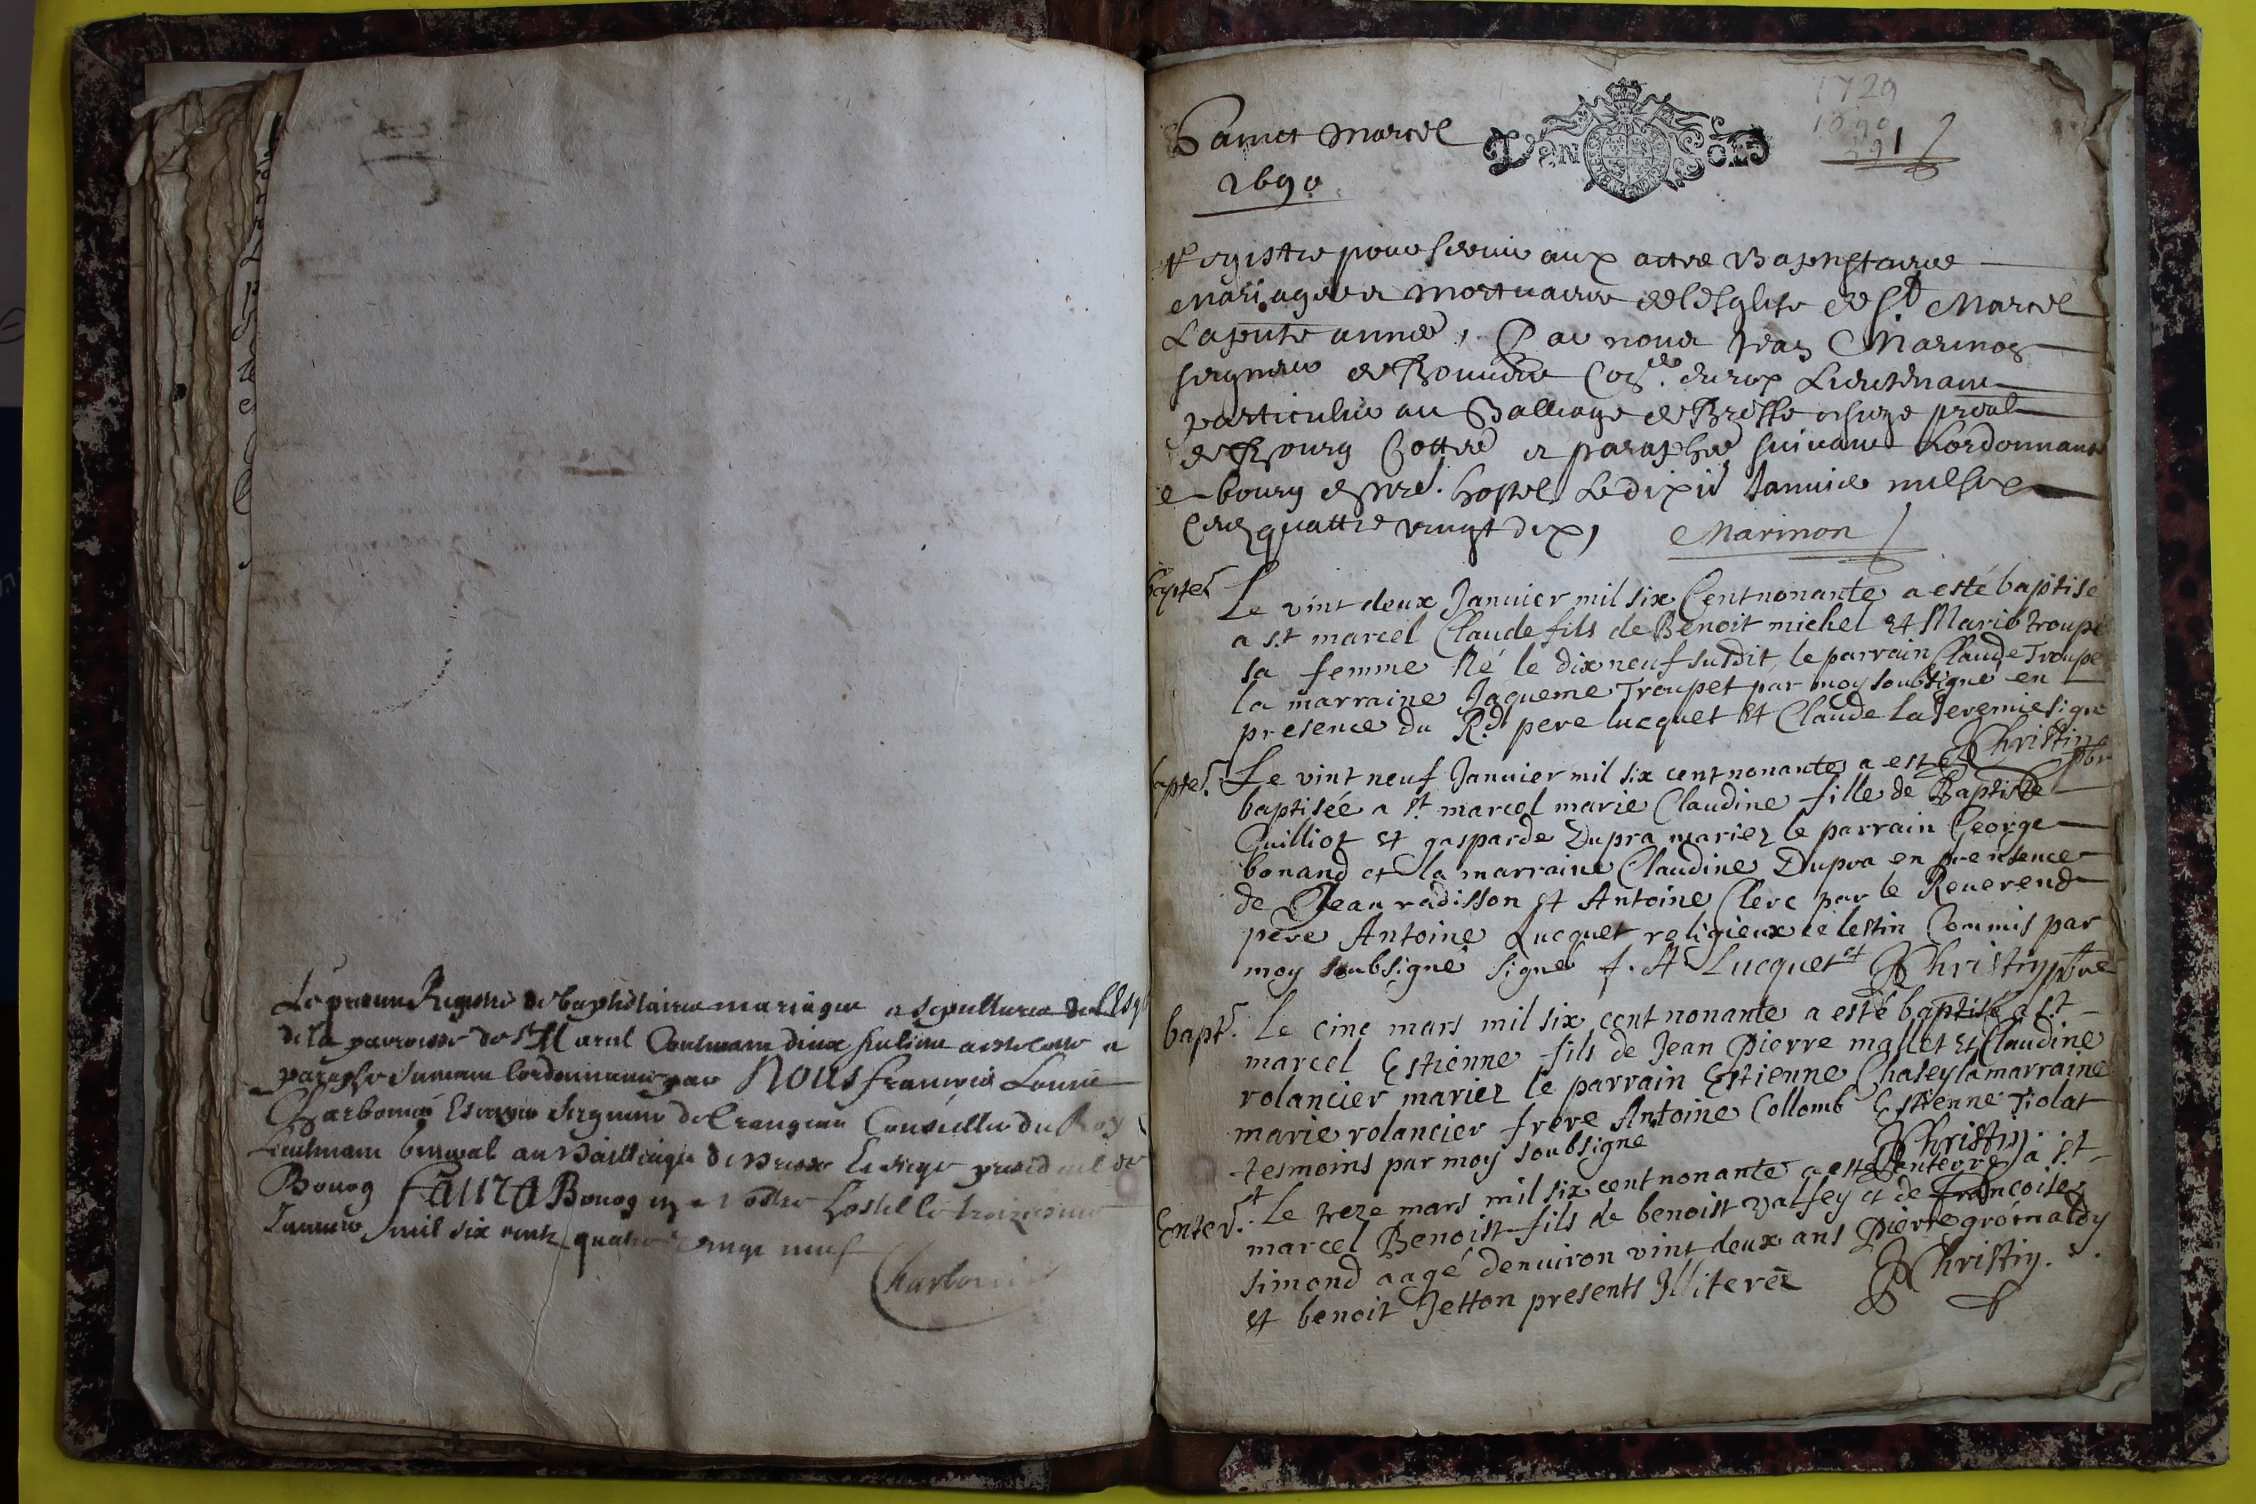 Le present Registre de baptistaires mariages et sepultures de l'Esg
de la parroisse de St Marcel Contenant deux feuliets a este cotté et
paraphé suivant l'ordonnance par Nous François Louis
Charbonnié Escuyer Seigneur de Conseiller du Roy
Lieutenant general au Bailliage de Bresse et siege presidial de
Bourg fait a Bourg en nostre hostel le treiziesme
Januier mil six cents quatre vingt neuf
Charbonnié
Sainct Marcel
1690
1729
1690
1
Registre pour servir aux actes Baptistaires
Mariages et mortuaires de l'Esglise de St Marcel
La pnte année, Par nous Jean Marinon
seigneur de Con.er du roy Lieutenant
particulier au Balliage de Bresse et siege preal
de Bourg Cotté et paraphé suivant Lordonnance
a bourg en nre hostel Le dix Januier mil six
Cent quattre vingt dix, Marinon
bapte.t Le vint deux Janvier mil six Cent nonante a esté baptisé
a s.t marcel Claude fils de Benoit michel et Marie troupe
sa femme Né le dix neuf susdit, le parrain Claude Troupe
la marraine Jaqueme Troupet par moy soubsigne en
presence du R.d pere lucquet et Claude la Jeremie signe
Christin pbr
bapte.t Le vint neuf Janvier mil six cent nonante a esté
baptisée a s.t marcel marie Claudine fille de Baptiste
Guilliot et gasparde Dupra mariez le parrain George
bonand et la marraine Claudine Dupra en presence
de Jean radisson et Antoine Clerc par le Reuerend
pere Antoine Lucquet religieux celestin Commis par
moy soubsigné signé f. A. Lucquet et Christin pbre
bapt.t Le cinc mars mil six cent nonante a esté baptisé a s.t
marcel Estienne fils de Jean Pierre mallet et Claudine
rolancier mariez le parrain Estienne Chasey la marraine
marie rolancier frere Antoine Collomb Estienne Tiolat
tesmoins par moy soubsigne Christin
Enter.t Le treze mars mil six cent nonante a esté enterré a s.t
marcel Benoist fils de benoist valfey et de francoise
simond aagé denuiron vint deux ans Pierre gromaldy
et benoit Jetton presents Illiterez Christin.